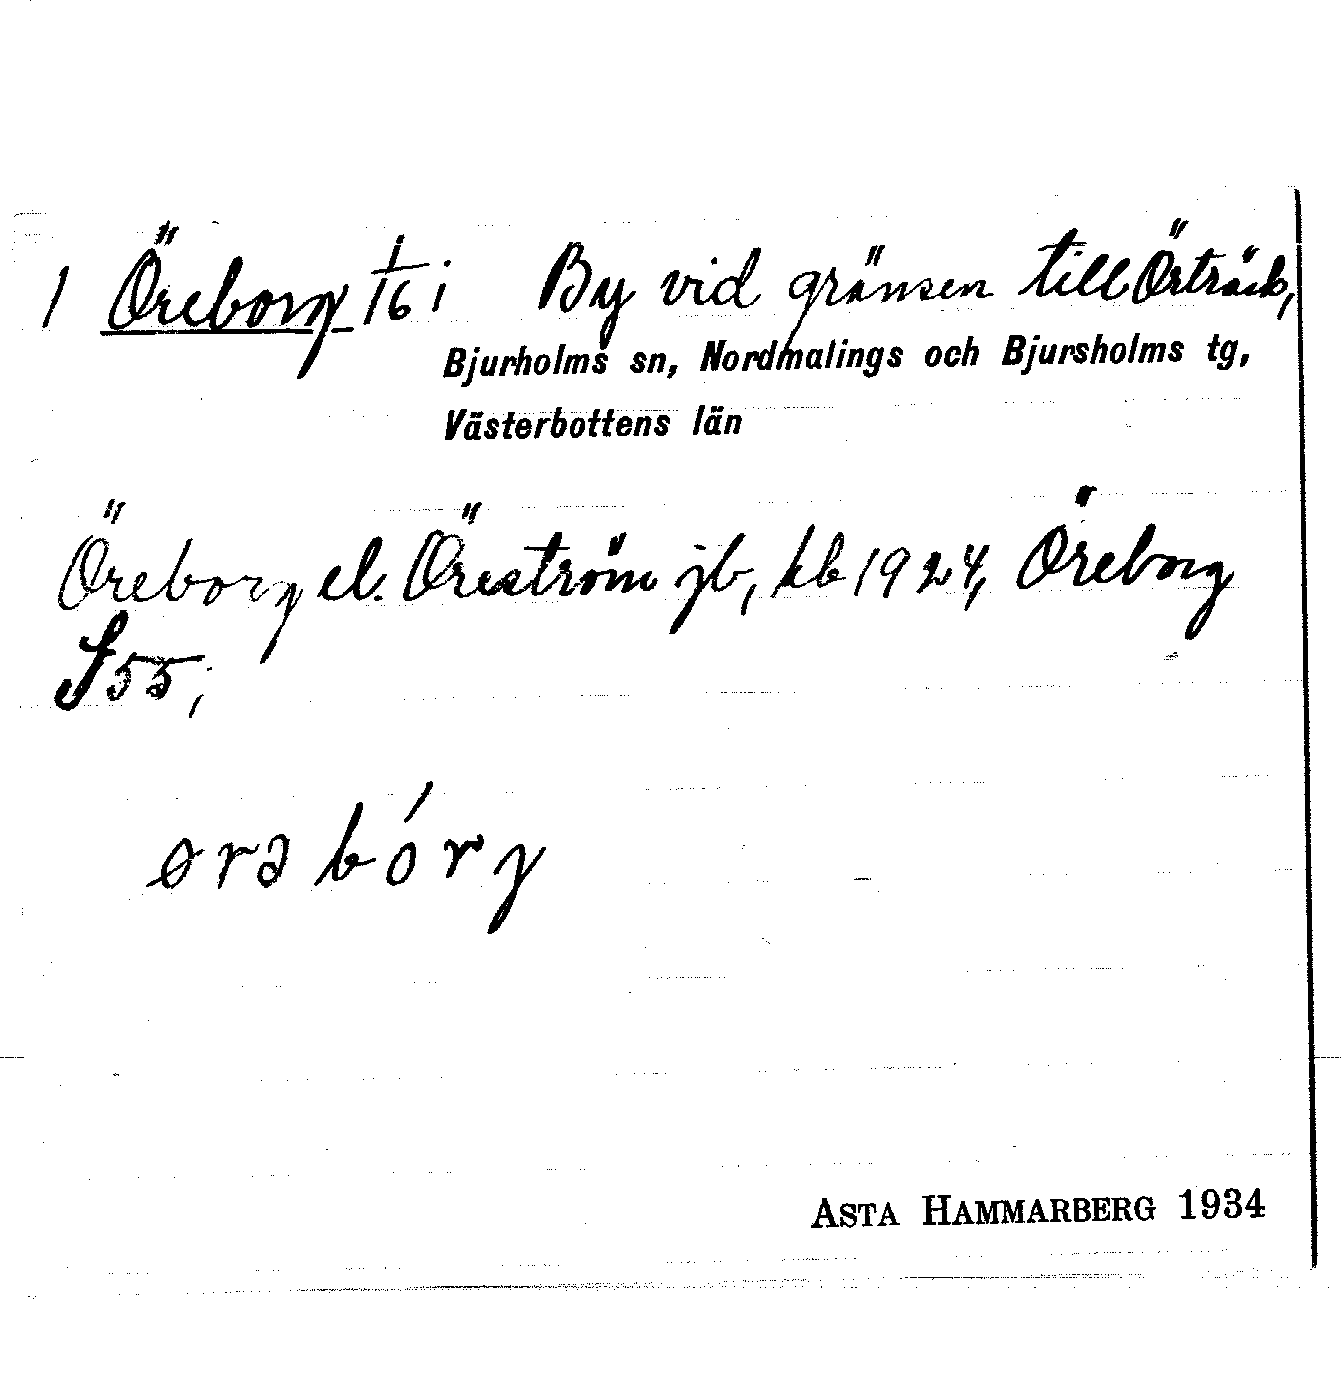 1 Öreborg 1/16 i By vid gränsen till Örträck,
Bjurholms sn, Nordmalings och Bjursholms tg,
Västerbottens län
Öreborg el. Öreström jb, kb 1924, Öreborg
S 55;
ørə bórg
ASTA HAMMARBERG 1934